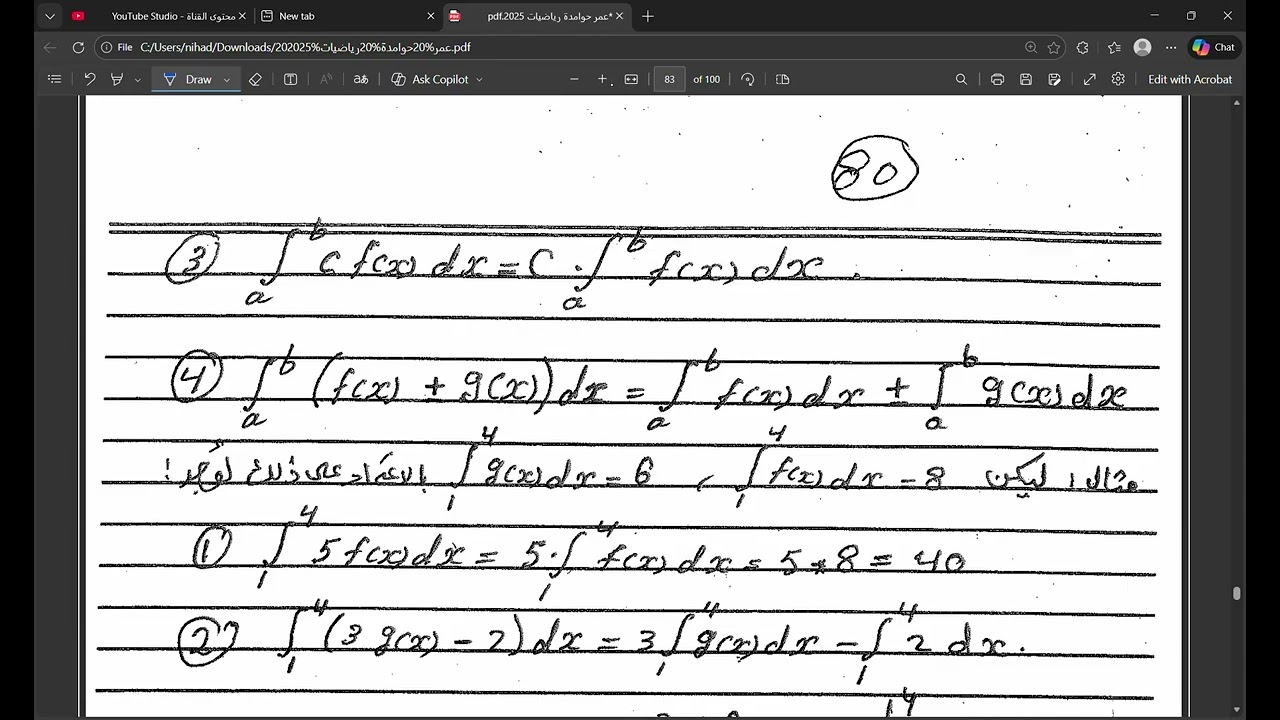 YouTube Studio - محتوى القناة
New tab
عمر حوامدة رياضيات 2025.pdf*
File C:/Users/nihad/Downloads/202025%رياضيات20%حوامدة20%عمر.pdf
Chat
Draw
aあ
Ask Copilot
83 of 100
Edit with Acrobat
80
③ ∫_a^b c f(x) dx = C . ∫_a^b f(x) dx .
④ ∫_a^b (f(x) + g(x)) dx = ∫_a^b f(x) dx ± ∫_a^b g(x) dx
مثال: ليكن ∫_1^4 f(x) dx = 8 , ∫_1^4 g(x) dx = 6 بالاعتماد على ذلك
① ∫_1^4 5 f(x) dx = 5 . ∫_1^4 f(x) dx = 5 * 8 = 40
② ∫_1^4 (3 g(x) - 2) dx = 3 ∫_1^4 g(x) dx - ∫_1^4 2 dx .